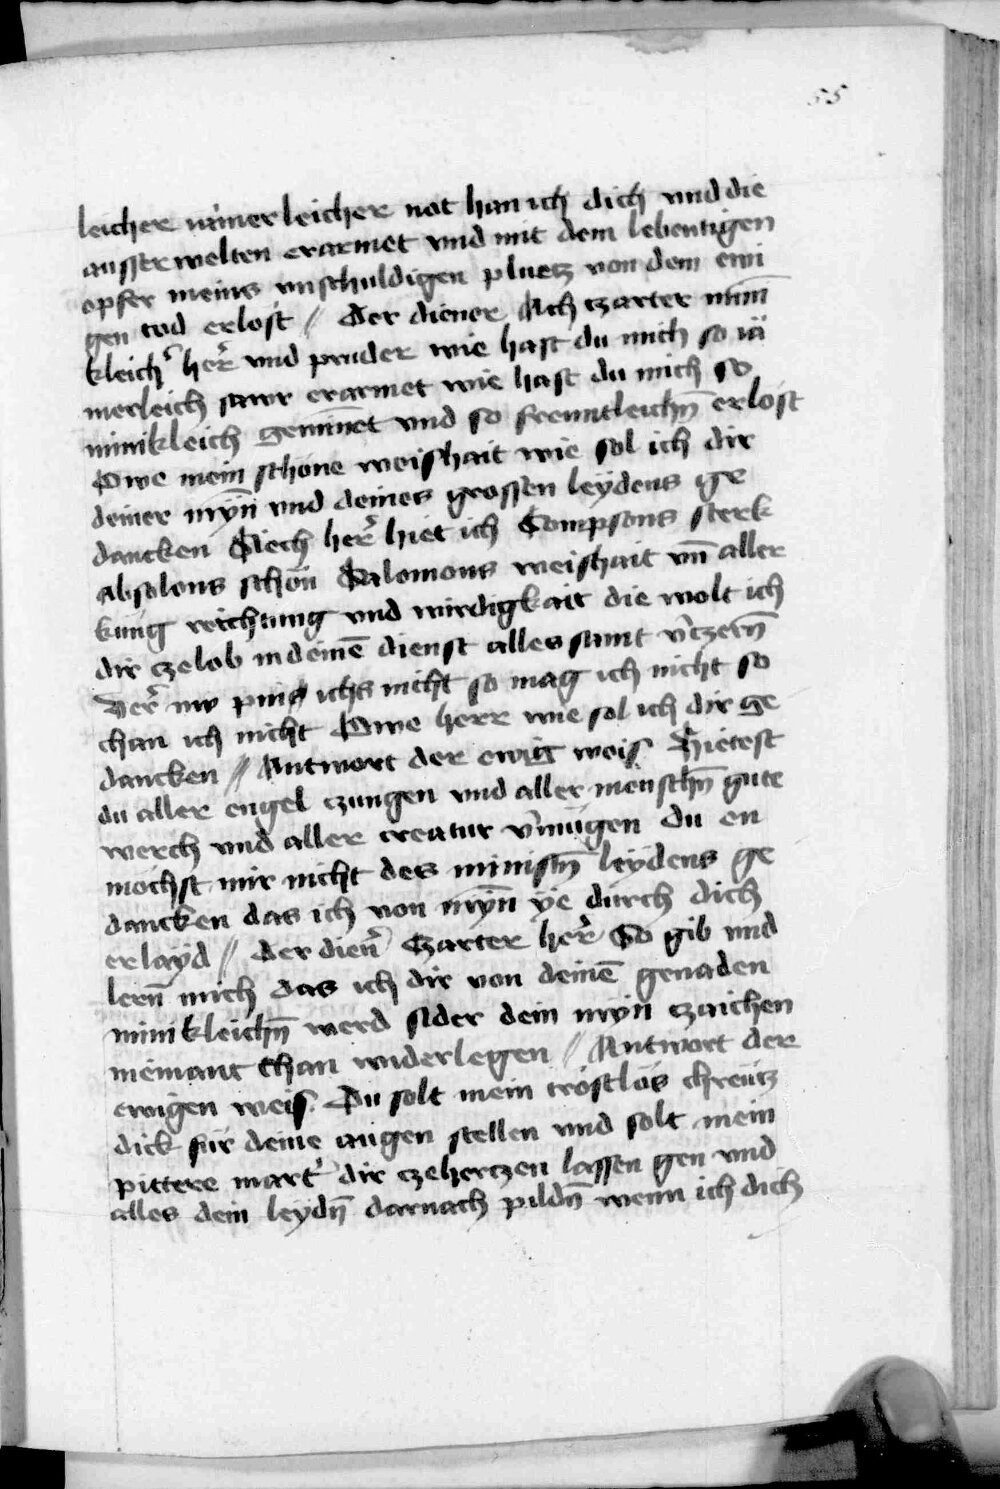 55
leicher iamerleicher not han ich dich vnd die
ausser welten erarmet vnd mit dem lebentigen
opfer meins vnschuldigen pluetz von dem ewi
gen tod erlost // Der diener Ach czarter minn̄
kleich' her̄ vnd pruder wie hast du mich so iä
merleich sawr erarmet wie hast du mich so
minikleich gemīnet vnd so freuntleichn̄ erlöst
Owe mein schöne weishait wie sol ich dir
deiner mÿn̄ vnd deines grossen leÿdens ge
dancken Siech her̄ hiet ich Sompsons sterk
Absolons schön Salomons weishait vn̄ aller
küng reichtung vnd wirdigkait die wolt ich
dir cze lob in deinē dienst alles samt v'czern̄
Her̄ nw pin ichs nicht so mag ich nicht so
chan ich nicht Owe herr wie sol ich dir ge
dancken // Antwort der ewig weis Hietest
du aller engel czungen vnd aller menschn̄ gute
werch vnd aller creatur v'mügen du en
möchst mir nicht des ministn̄ leÿdens ge
dancken das ich von mÿn̄ ÿe durch dich
erlaÿd // der dien' Czarter her̄ So gib vnd
lern̄ mich das ich dir von deinē genaden
minikleichn̄ werd sider dein mÿn czaichen
niemant chan widerlegen // Antwort der
ewigen weis Du solt mein tröstlös chreütz
dick für deine augen stellen vnd solt mein
pittere mart' dir cze herczen lassen gen vnd
alles dein leÿdn̄ darnach pildn̄ wenn ich dich